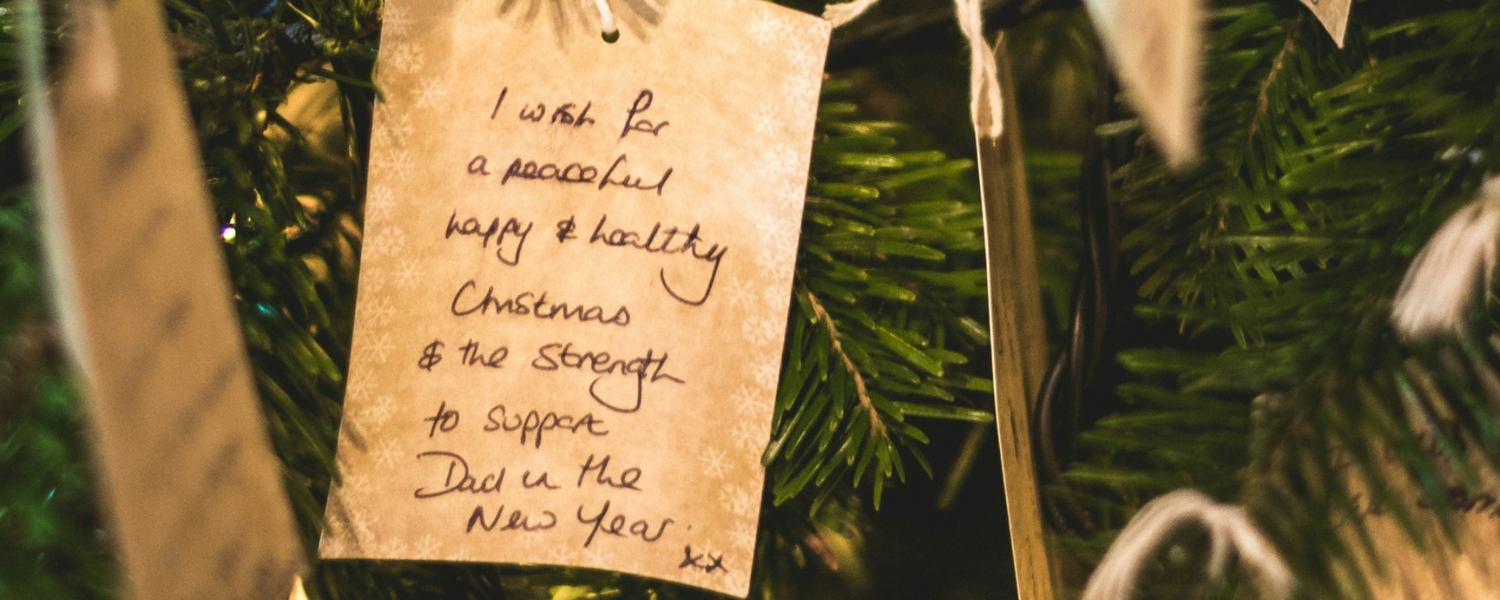 I wish for
a peaceful
happy & healthy
Christmas
& the strength
to support
Dad in the
New Year.
xx